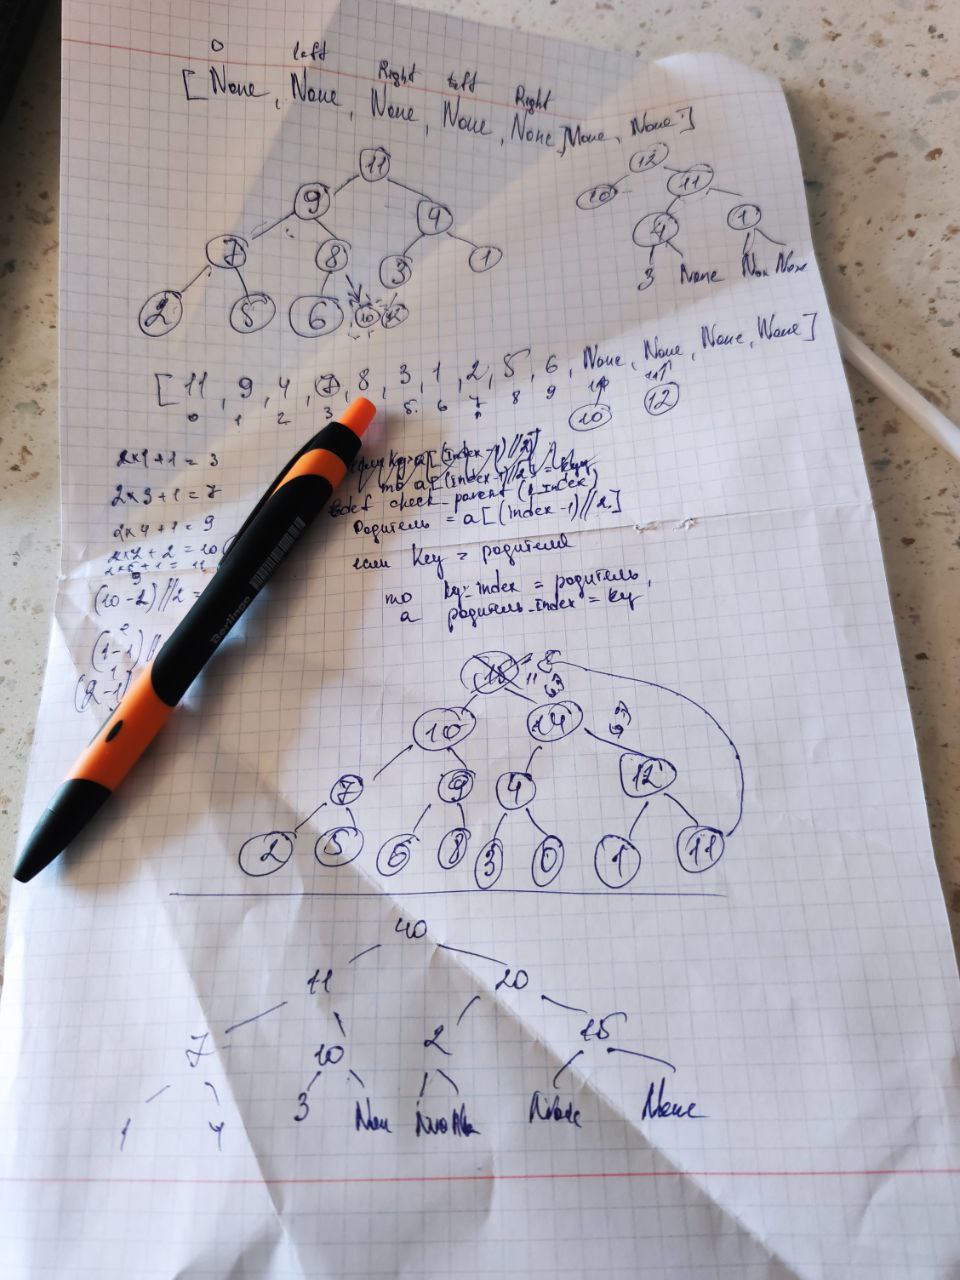 0 left Right left Right
[None, None, None, None, None, None, None]
11
9 4
7 8 3 1
2 5 6 10 12
12
10 11
4 1
3 None Non None
[11, 9, 4, 7, 8, 3, 1, 2, 5, 6, None, None, None, None]
0 1 2 3 5 6 7 8 9
10 12
2*1+1=3
2*3+1=7
2*4+1=9
= 10
= 11
(10-2)//2=
(1-1)
(2-1)
def check_parent( index)
Родитель = a[(index-1)//2]
если key = родителя
то key_index = родитель,
а родитель_index = key
Berlingo
10 14
7 9 4 12
2 5 6 8 3 0 1 11
40
11 20
7 10 2 15
1 4 3 Non None None